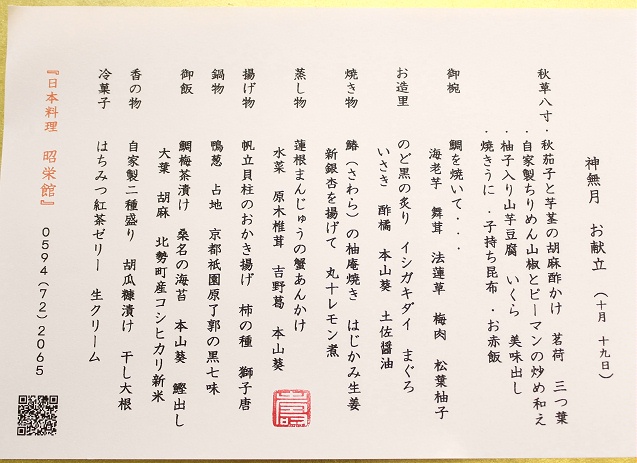 神無月　お献立　（十月　十九日）
秋草八寸・秋茄子と芋茎の胡麻酢かけ　茗荷　三つ葉
・自家製ちりめん山椒とピーマンの炒め和え
・柚子入り山芋豆腐　いくら　美味出し
・焼きうに　・子持ち昆布　・お赤飯
御椀　鯛を焼いて・・・
海老芋　舞茸　法蓮草　梅肉　松葉柚子
お造里　のど黒の炙り　イシガキダイ　まぐろ
いさき　酢橘　本山葵　土佐醤油
焼き物　鰆（さわら）の柚庵焼き　はじかみ生姜
新銀杏を揚げて　丸十レモン煮
蒸し物　蓮根まんじゅうの蟹あんかけ
水菜　原木椎茸　吉野葛　本山葵
揚げ物　帆立貝柱のおかき揚げ　柿の種　獅子唐
鍋物　鴨葱　占地　京都祇園原了郭の黒七味
御飯　鯛梅茶漬け　桑名の海苔　本山葵　鰹出し
大葉　胡麻　北勢町産コシヒカリ新米
香の物　自家製二種盛り　胡瓜糠漬け　干し大根
冷菓子　はちみつ紅茶ゼリー　生クリーム
『日本料理　昭栄館』　0594(72)2065
寿